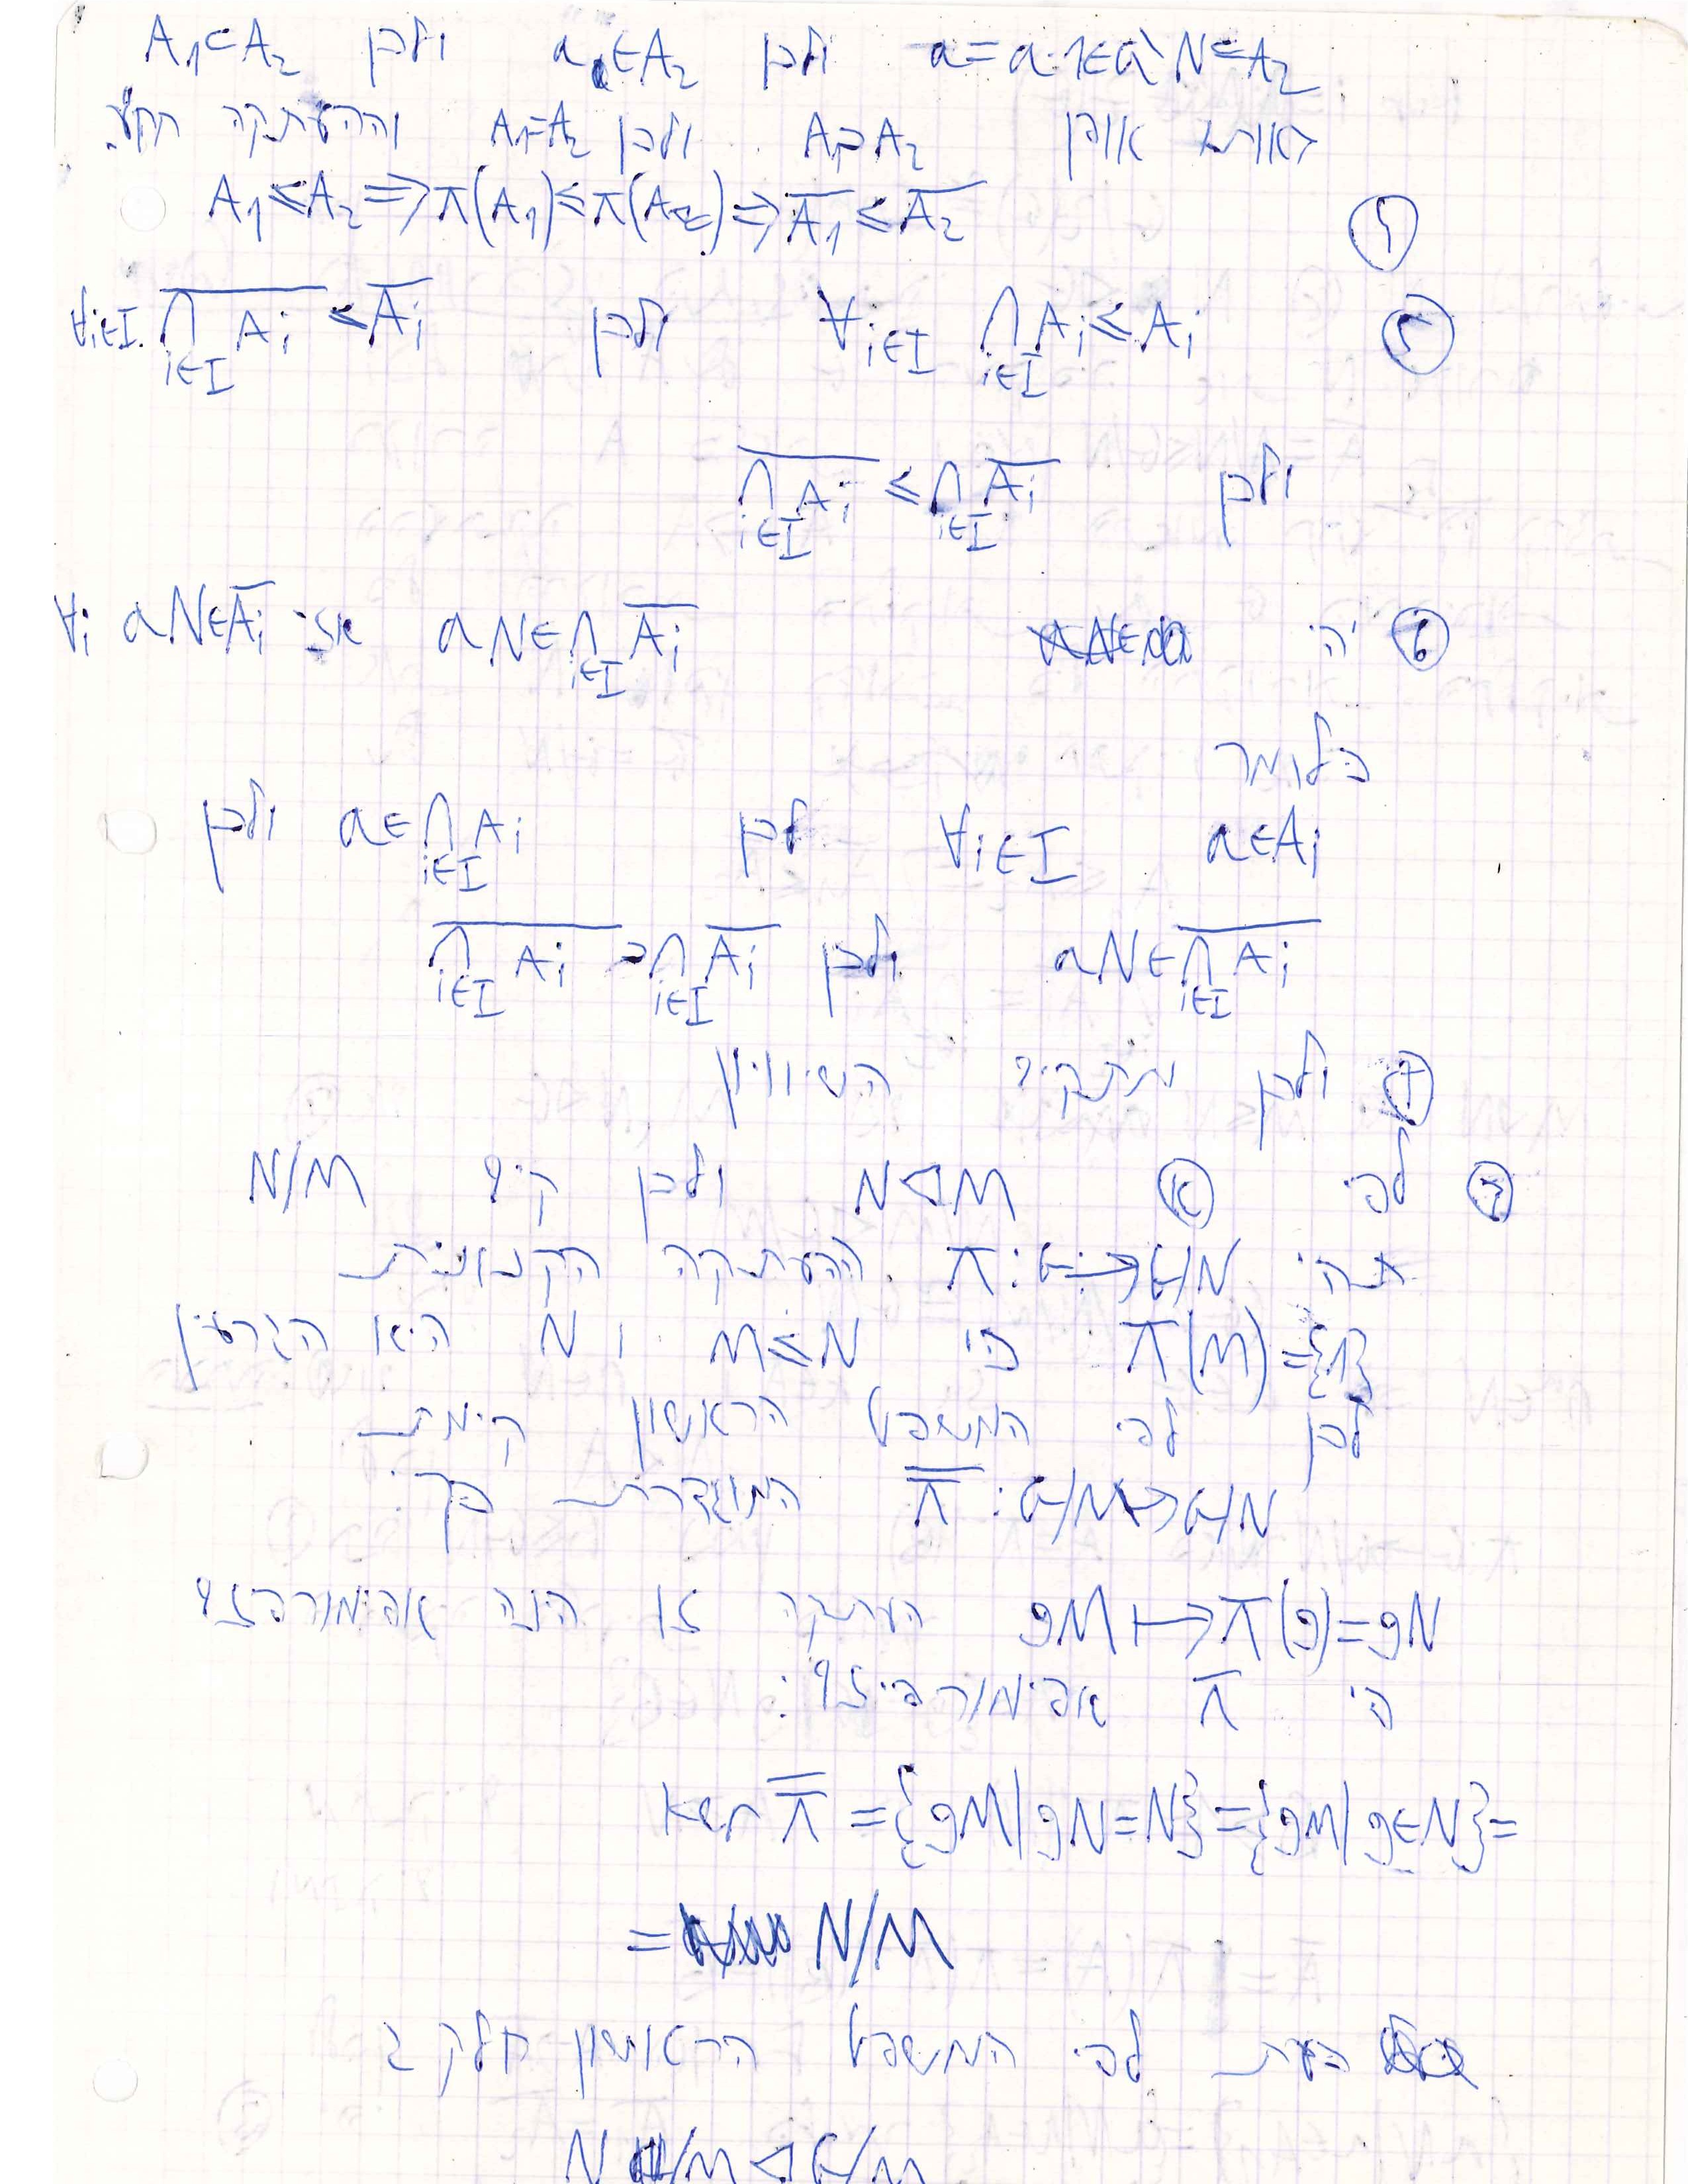 a=a·1∈aN⊂A₂ ולכן a₁∈A₂ ולכן A₁⊂A₂
באותו אופן A₁⊃A₂ ולכן A₁=A₂ וההעתקה חח"ע.
A₁≤A₂ ⟹ π(A₁)≤π(A₂) ⟹ \overline{A₁}≤\overline{A₂}
∀i∈I ⋂_{i∈I} A_i ≤ A_i ולכן ∀i∈I. \overline{⋂_{i∈I} A_i} ≤ \overline{A_i}
ולכן \overline{⋂_{i∈I} A_i} ≤ ⋂_{i∈I} \overline{A_i}
⑥ יהי aN∈⋂_{i∈I} \overline{A_i} אזי ∀i aN∈\overline{A_i}
כלומר
a∈A_i ∀i∈I לכן a∈⋂_{i∈I} A_i ולכן
aN∈\overline{⋂_{i∈I} A_i} ולכן \overline{⋂_{i∈I} A_i} ⊃ ⋂_{i∈I} \overline{A_i}
ולכן מתקיים השיוויון
לפי N◁M ולכן קיים N/M
תהי π:G→G/N ההעתקה הקנונית
π(M)={1} כי M≤N ו N היא הגרעין
לכן לפי המשפט הראשון קיימת
\overline{π}:G/M→G/N המוגדרת כך:
gM↦π(g)=gN העתקה זו הינה אפימורפיזם
כי π אפימורפיזם:
ker\overline{π}={gM|gN=N}={gM|g∈N}=
= N/M
כעת לפי המשפט הראשון חלק ג
N/M◁G/M